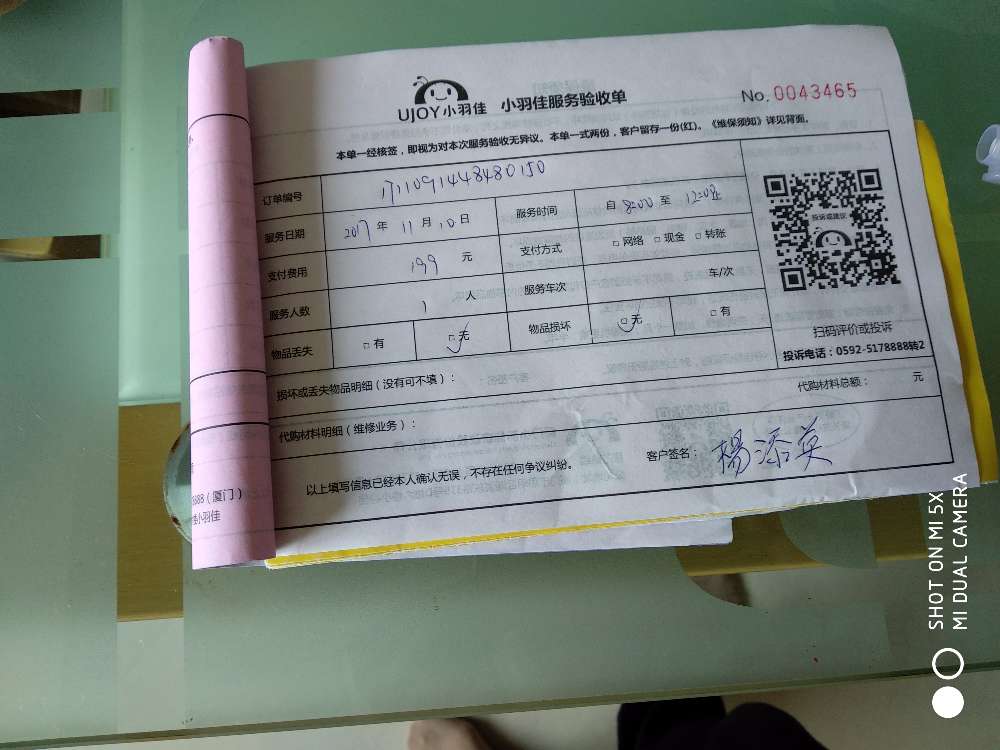 UJOY小羽佳 小羽佳服务验收单 No.0043465
本单一经核签，即视为对本次服务验收无异议。本单一式两份，客户留存一份(红)。《维保须知》详见背面。
订单编号 1711091448480150
服务日期 2017年 11月 10日 服务时间 自 8:00 至 12:00止
支付费用 199 元 支付方式 □网络 □现金 □转账
服务人数 1 人 服务车次 车/次
物品丢失 □有 □无 物品损坏 □无 □有
投诉或建议
扫码评价或投诉
投诉电话：0592-5178888转2
损坏或丢失物品明细（没有可不填）：
代购材料明细（维修业务）： 代购材料总额： 元
以上填写信息已经本人确认无误，不存在任何争议纠纷。 客户签名： 楊添英
888（厦门）
小羽佳
SHOT ON MI 5X
MI DUAL CAMERA